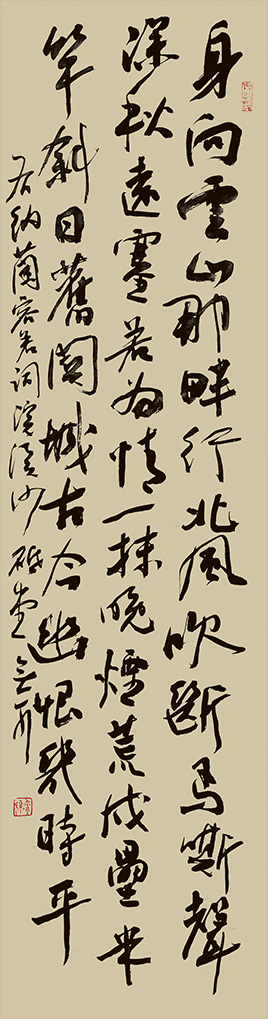 身向雲山那畔行北風吹斷馬嘶聲
深秋遠塞若為情一抹晚煙荒戍壘半
竿斜日舊關城古今幽恨幾時平
右納蘭容若詞浣溪沙